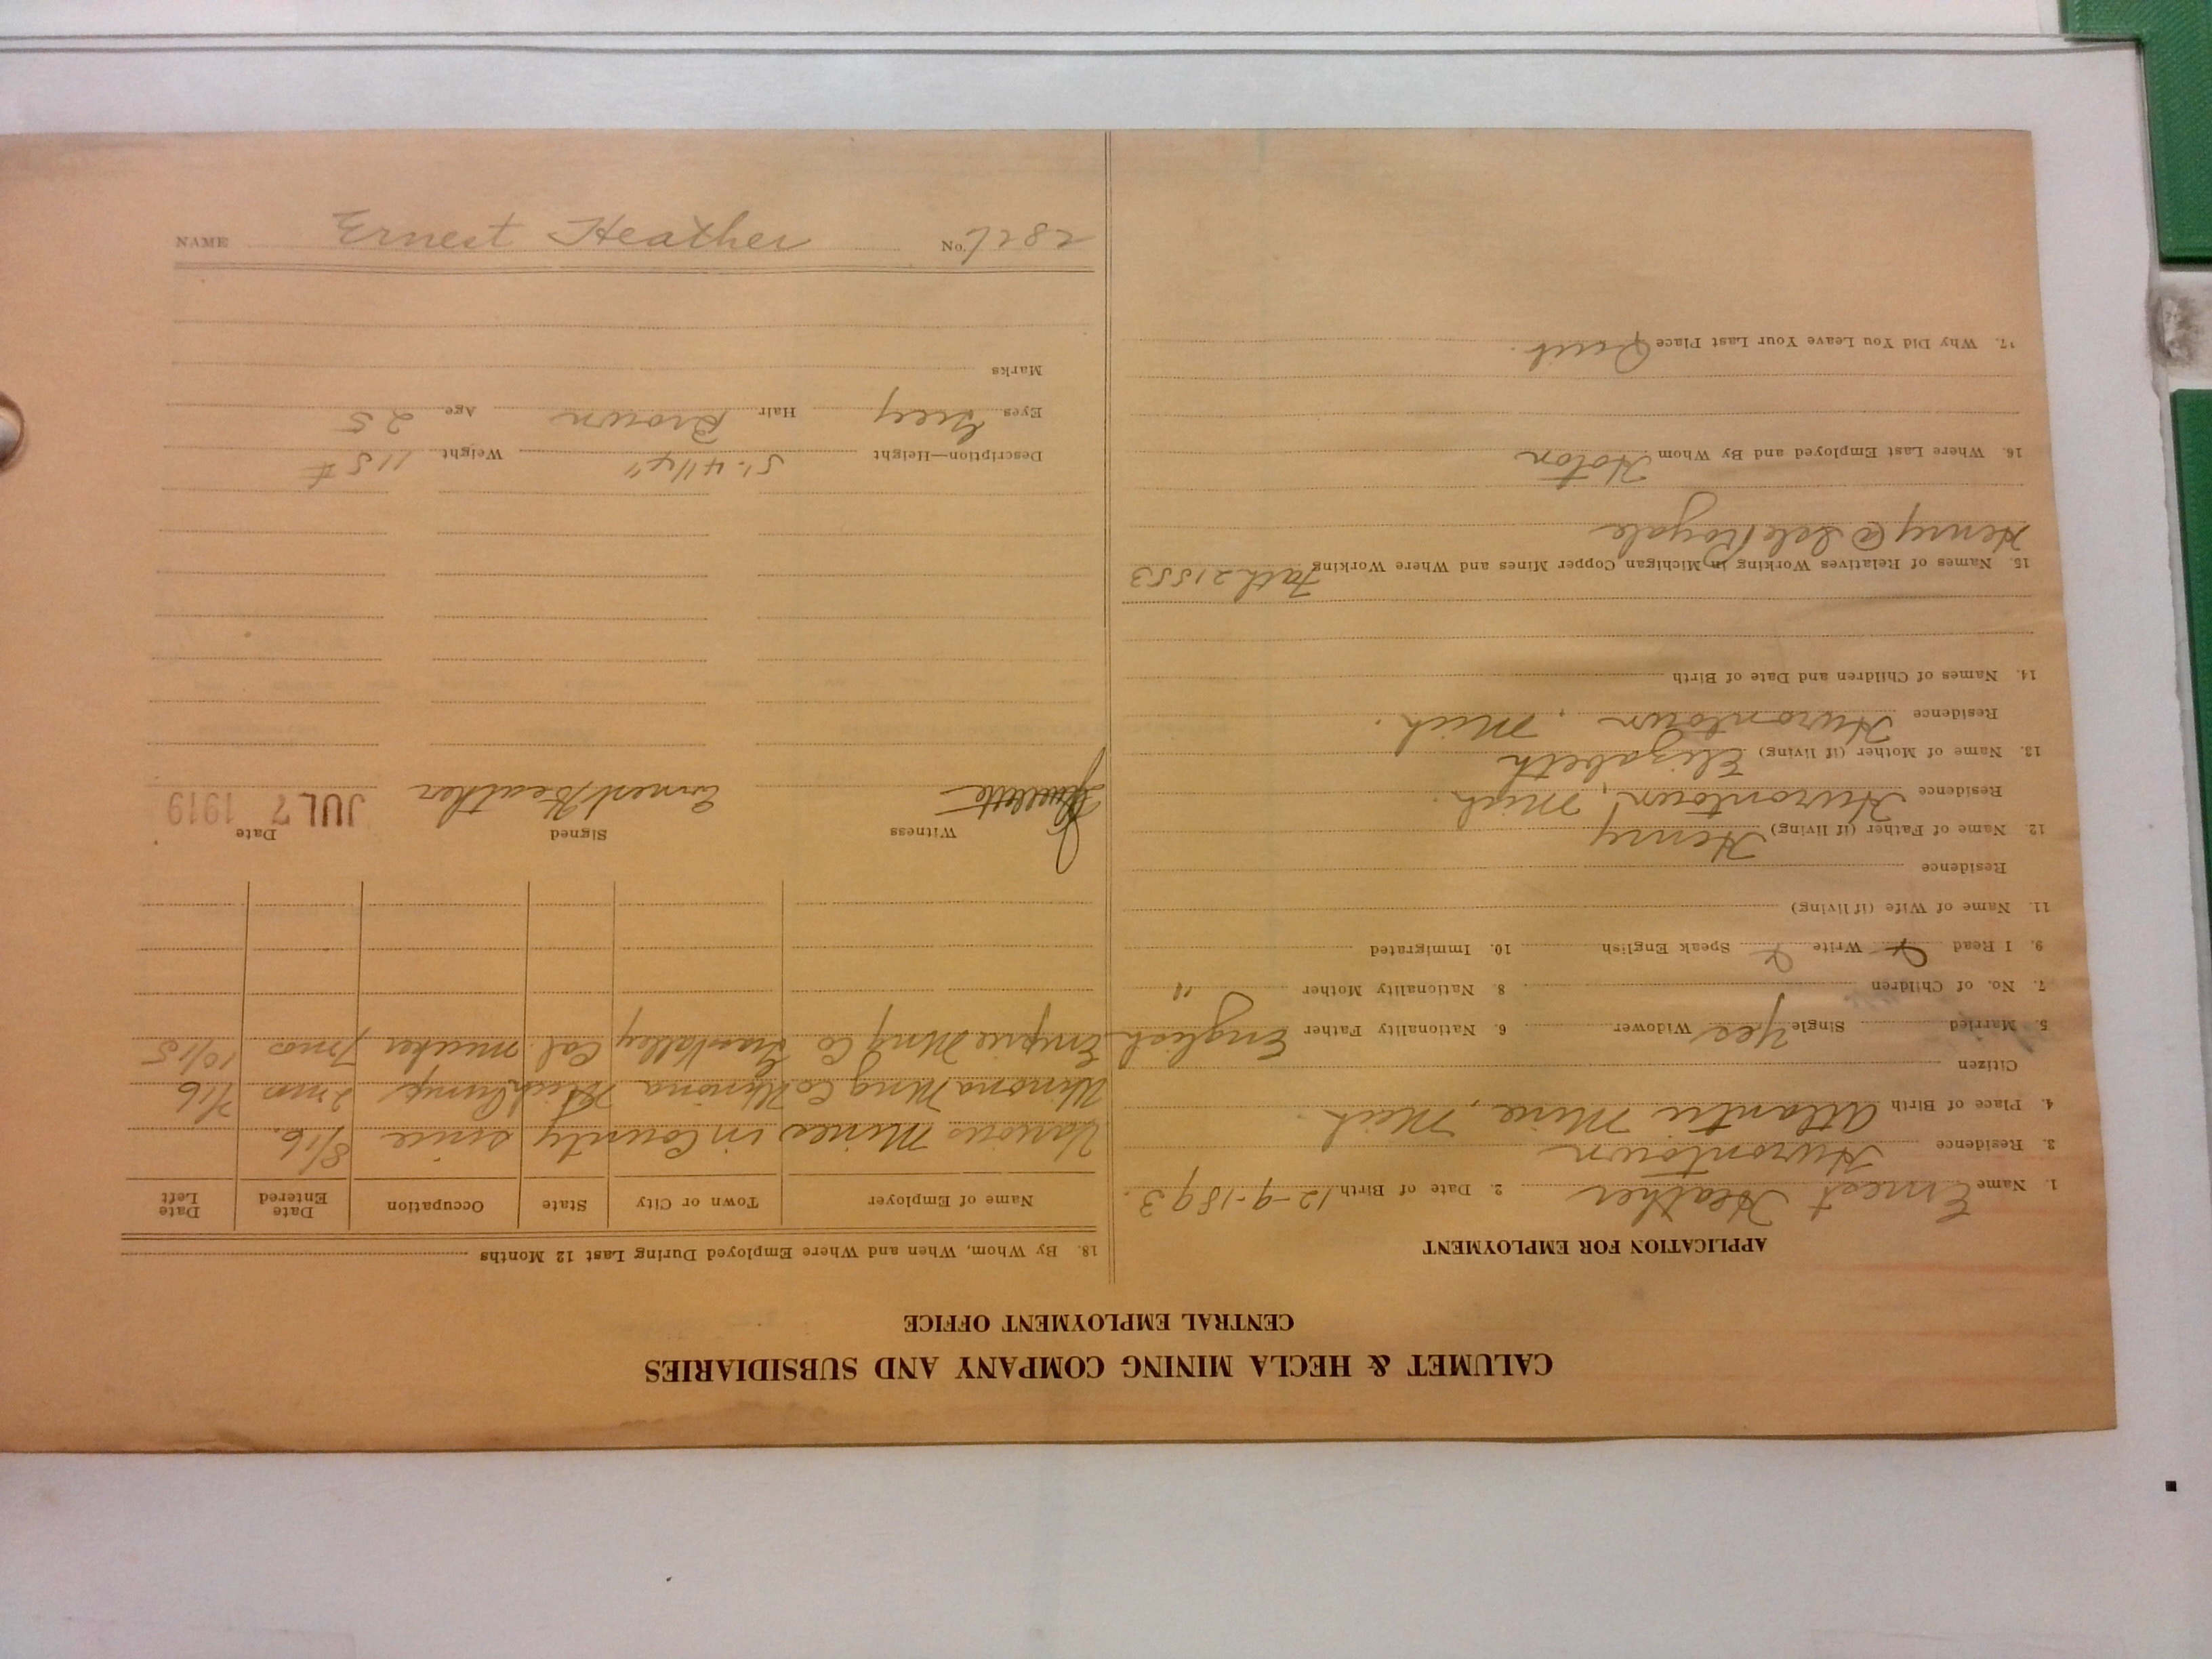 CALUMET & HECLA MINING COMPANY AND SUBSIDIARIES
CENTRAL EMPLOYMENT OFFICE
APPLICATION FOR EMPLOYMENT
1. Name Ernest Heather 2. Date of Birth 12-9-1893.
3. Residence Hurontown
4. Place of Birth Atlantic Mine, Mich.
Citizen
5. Married Single Yes Widower 6. Nationality Father English
7. No. of Children 8. Nationality Mother "
9. I Read Write Speak English 10. Immigrated
11. Name of Wife (if living)
Residence
12. Name of Father (if living) Henry
Residence Hurontown, Mich.
13. Name of Mother (if living) Elizabeth
Residence Hurontown, Mich.
14. Names of Children and Date of Birth
15. Names of Relatives Working in Michigan Copper Mines and Where Working Fath 21553
Henry @ Isle Royale
16. Where Last Employed and By Whom Hoton
17. Why Did You Leave Your Last Place Quit.
18. By Whom, When and Where Employed During Last 12 Months
Name of Employer Town or City State Occupation Date Entered Date Left
Various Mines in County since 8/16.
Winona Mng Co Winona Mich Pumps 2 mos 7/16
Empire Mng Co Grass Valley Cal. mucker 7 mos 10/15
Witness Signed Date
Ernest Heather JUL 7 1919
Description—Height 5'-4 1/4" Weight 115 #
Eyes Grey Hair Brown Age 25
Marks
NAME Ernest Heather No. 7282